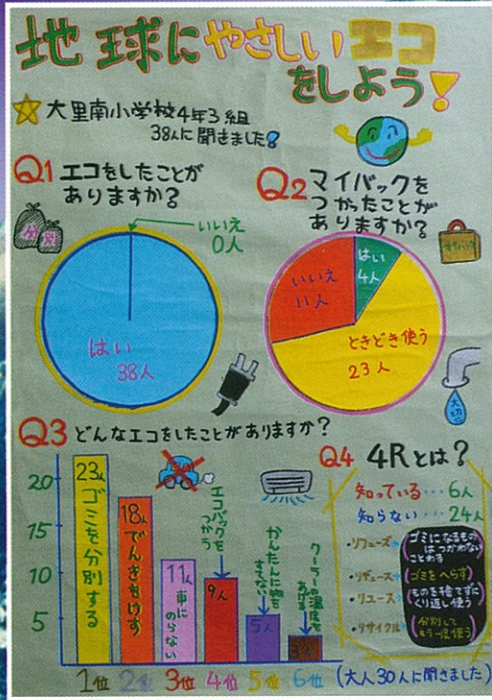 地球にやさしいエコ
をしよう!
大里南小学校4年3組
38人に聞きました!
Q1 エコをしたことが
ありますか?
いいえ
0人
はい
38人
Q2 マイバックを
つかったことが
ありますか?
はい
4人
いいえ
11人
ときどき使う
23人
マイバック
分別
大切に
Q3 どんなエコをしたことがありますか?
20
15
10
5
23人 ゴミを分別する
18人 でんきをけす
11人 車にのらない
エコバックをつかう
9人
かんたんに物をすてない
5人
クーラーの温度をあげる
3人
1位 2位 3位 4位 5位 6位
Q4 4Rとは?
知っている…6人
知らない…24人
・リフューズ(ゴミになるもの
はつかわない
ことわる)
・リデュース(ゴミをへらす)
・リユース(ものを捨てずに
くり返し使う)
・リサイクル(分別して
もう一度使う)
(大人30人に聞きました)